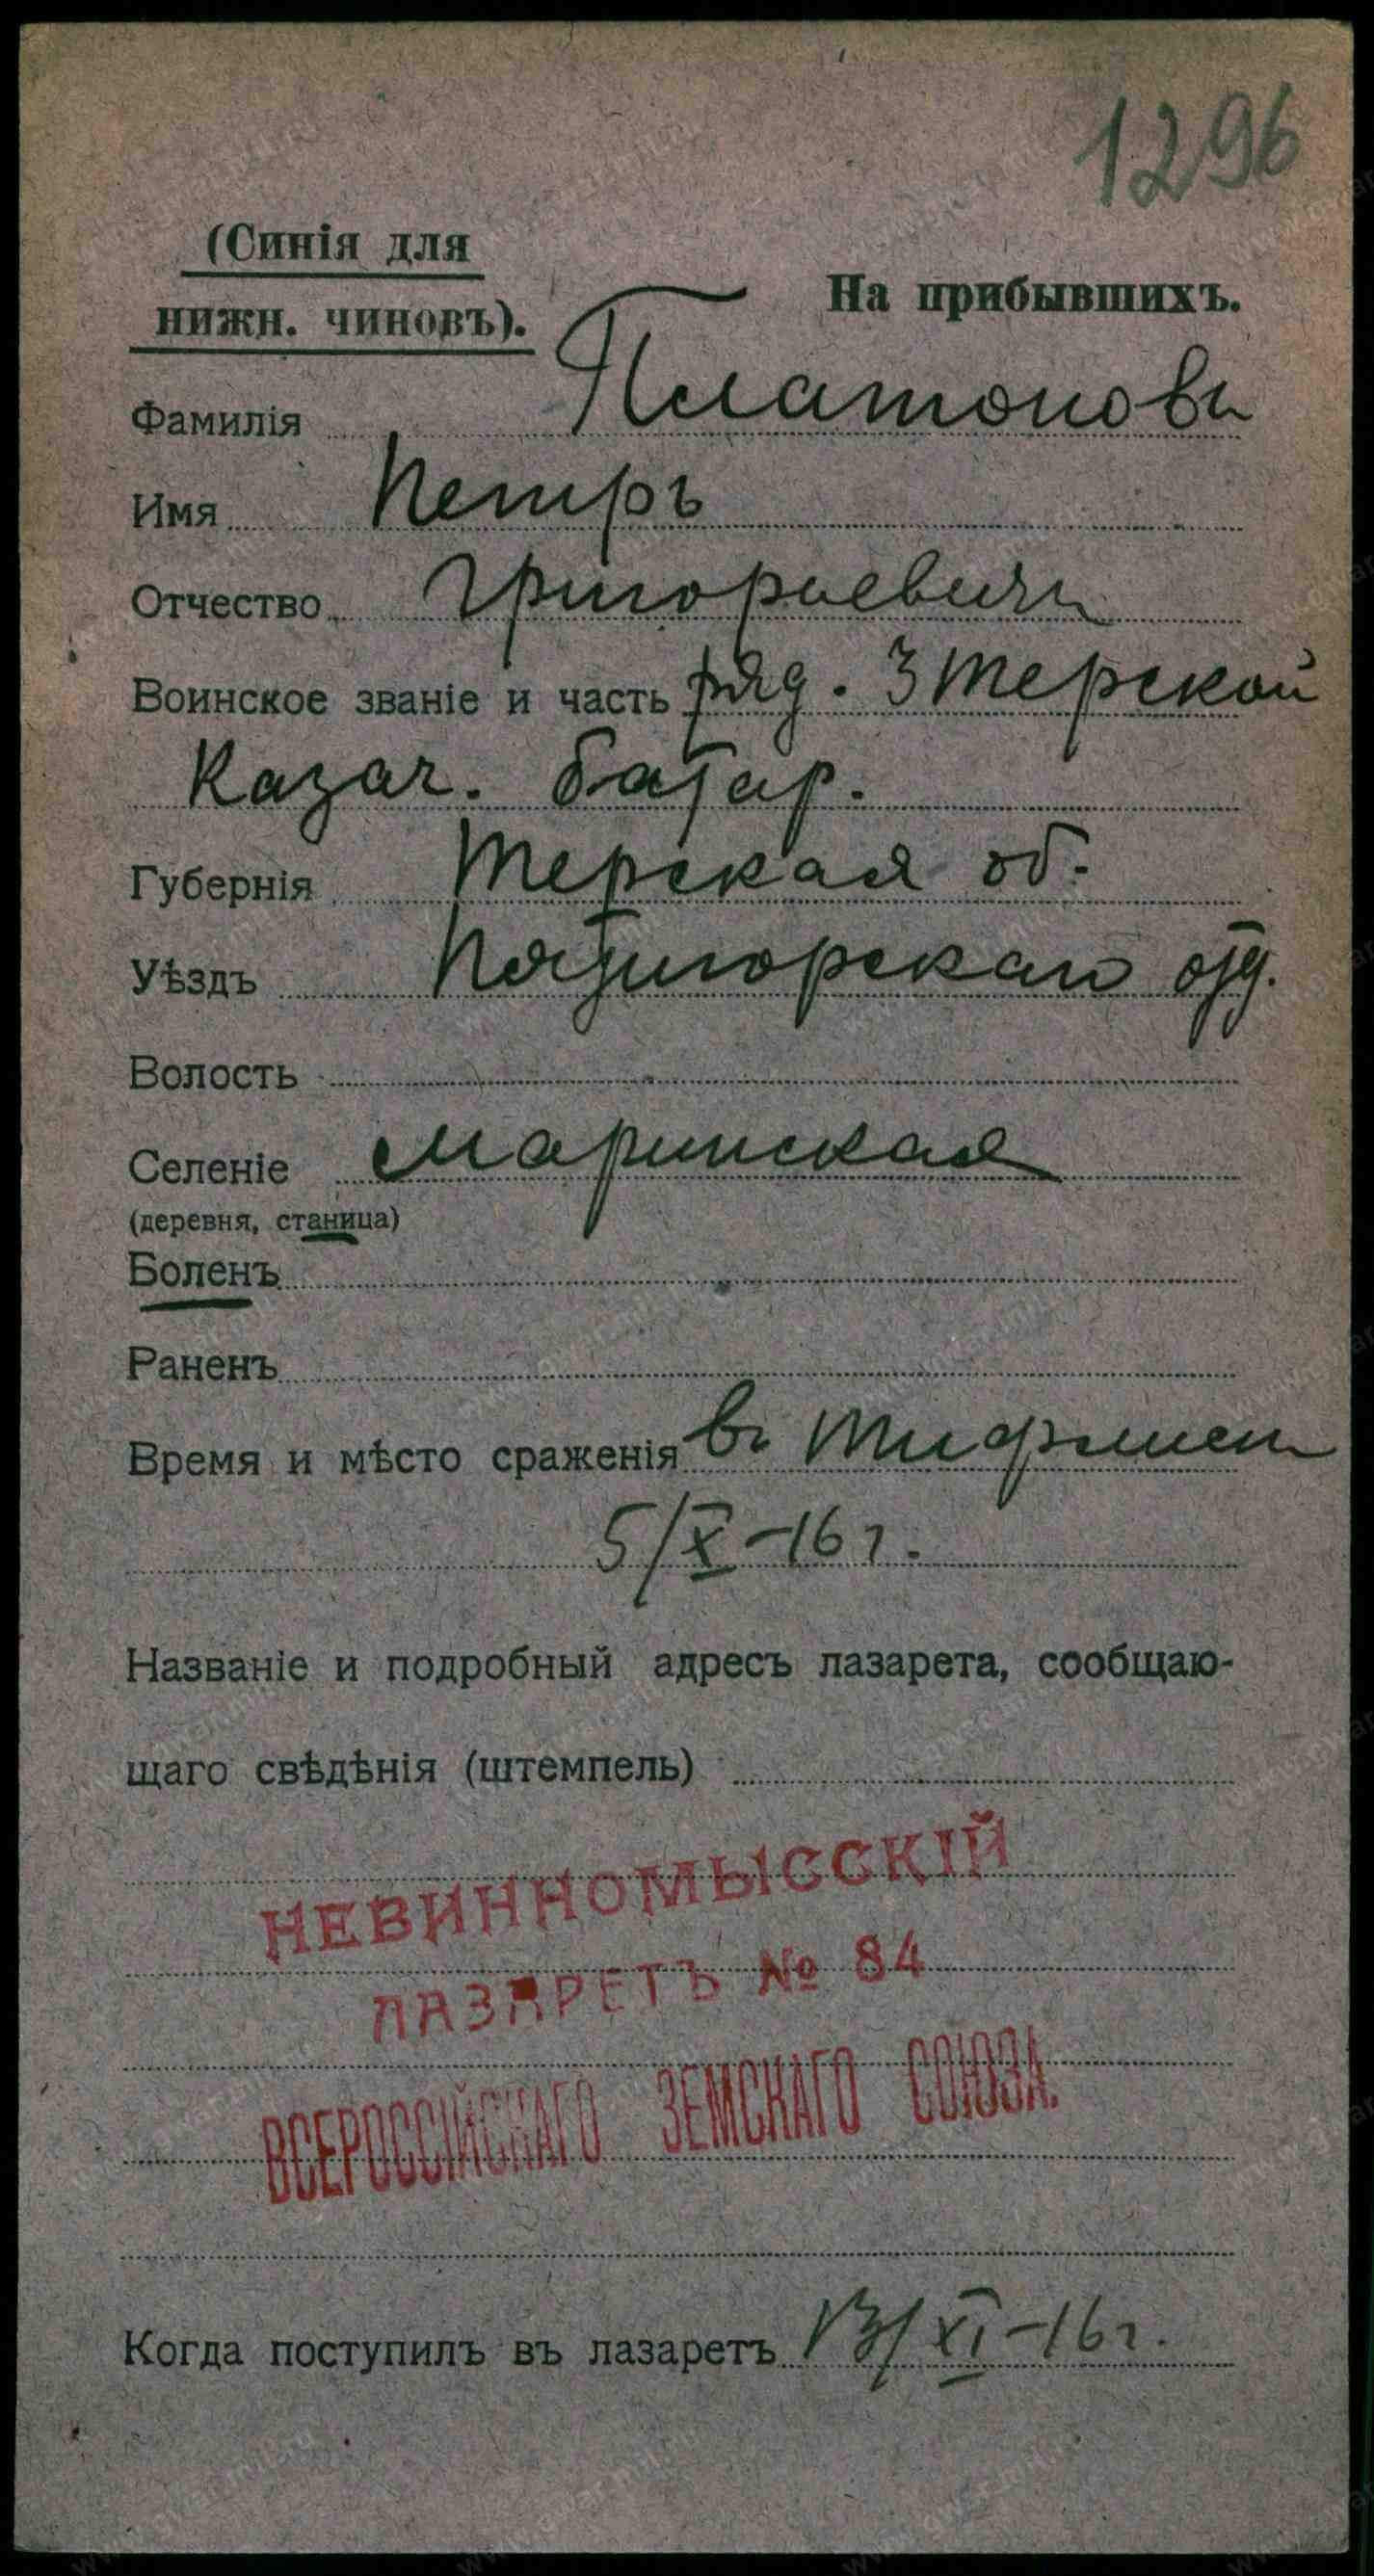 1296
(Синія для
нижн. чиновъ).
На прибывшихъ.
Фамилія Платоновъ
Имя Петръ
Отчество Григорьевичъ
Воинское званіе и часть ряд. 3 Терской
Казач. батар.
Губернія Терская об.
Уѣздъ Пятигорскаго отд.
Волость
Селеніе Маринская
(деревня, станица)
Боленъ
Раненъ
Время и мѣсто сраженія въ Тифлисѣ
5/X-16 г.
Названіе и подробный адресъ лазарета, сообщаю-
щаго свѣдѣнія (штемпель)
НЕВИННОМЫССКІЙ
ЛАЗАРЕТЪ № 84
ВСЕРОССІЙСКАГО ЗЕМСКАГО СОЮЗА.
Когда поступилъ въ лазаретъ 13/XI-16 г.